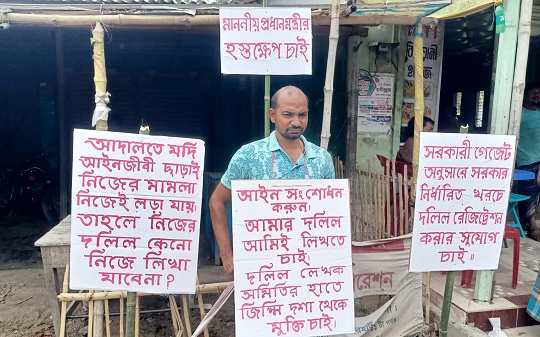 মাননীয় প্রধানমন্ত্রীর
হস্তক্ষেপ চাই
আদালতে যদি
আইনজীবী ছাড়াই
নিজের মামলা
নিজেই লড়া যায়,
তাহলে নিজের
দলিল কেনো
নিজে লিখা
যাবেনা ?
আইন সংশোধন
করুন।
আমার দলিল
আমিই লিখতে
চাই।
দলিল লেখক
সমিতির হাতে
জিম্মি দশা থেকে
মুক্তি চাই।
সরকারী গেজেট
অনুসারে সরকার
নির্ধারিত খরচে
দলিল রেজিষ্ট্রেশন
করার সুযোগ
চাই॥